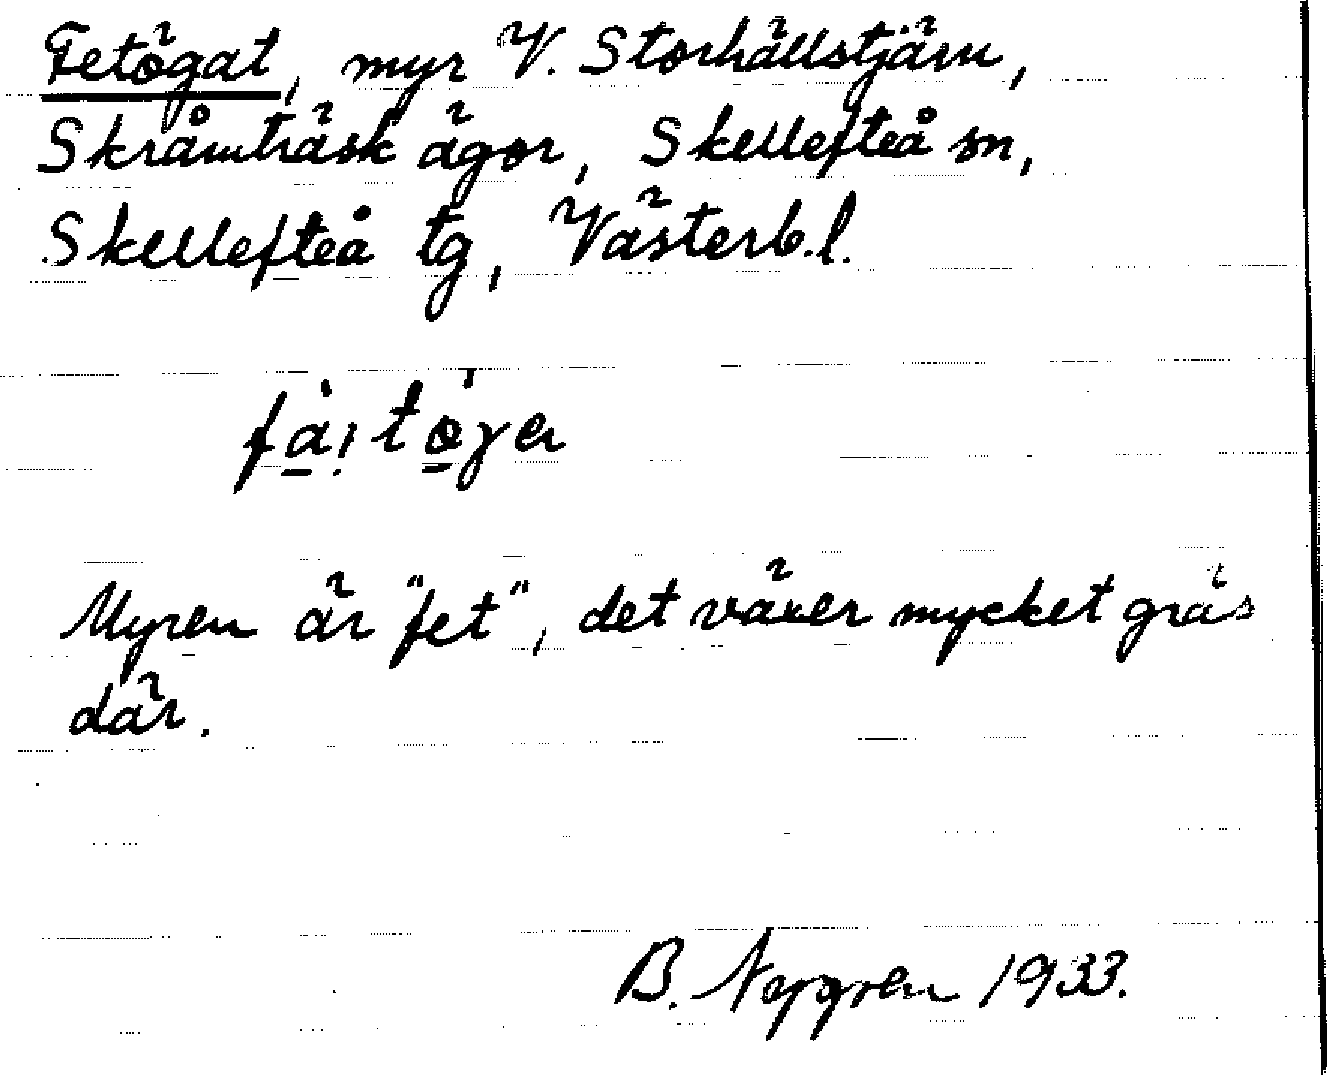 Fetögat, myr V. Storhällstjärn,
Skråmträsk ägor, Skellefteå sn,
Skellefteå tg, Västerb.l.
Myren är "fet", det växer mycket gräs
där.
B. Nygren 1933.